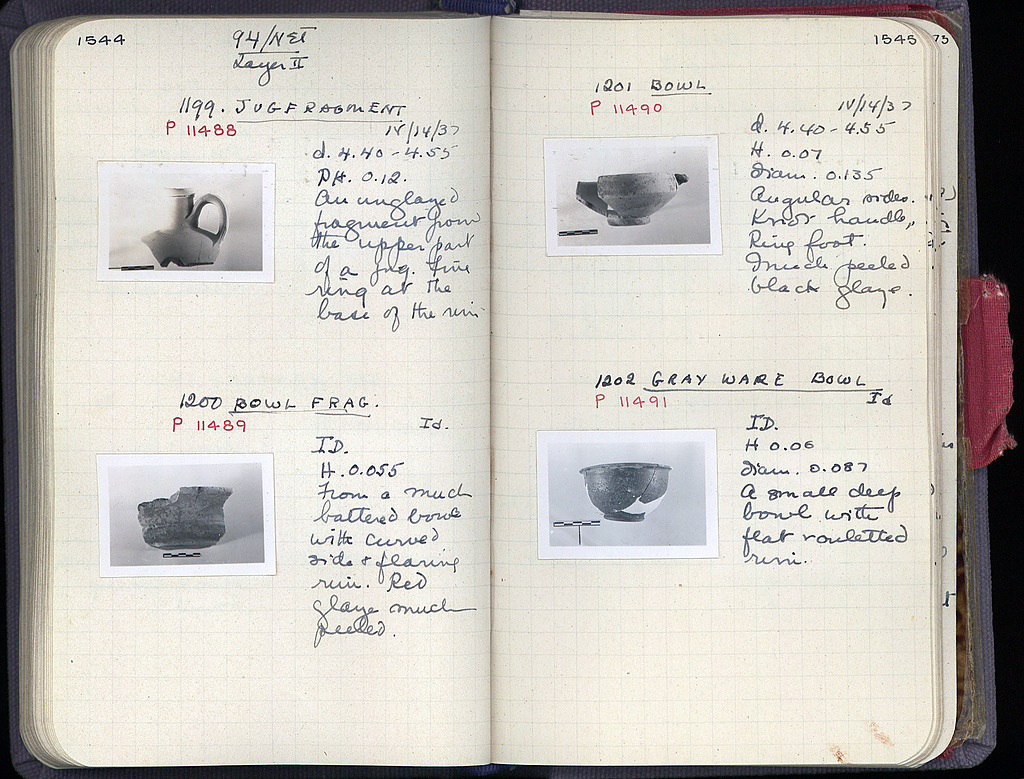 1544
94/ΝΕΤ
Layer II
1199. JUG FRAGMENT
P 11488
IV/14/37
d. 4.40 - 4.55
PH. 0.12.
An unglazed
fragment from
the upper part
of a jug. Fine
ring at the
base of the rim
1200 BOWL FRAG.
P 11489
Id.
ID.
H. 0.055
From a much
battered bowl
with curved
side & flaring
rim. Red
glaze much
peeled.
1545
73
1201 BOWL
P 11490
IV/14/37
d. 4.40 - 4.55
H. 0.07
Diam. 0.135
Angular sides.
Knob handle,
Ring foot.
Much peeled
black glaze.
1202 GRAY WARE BOWL
P 11491
Id
ID.
H 0.06
Diam. 0.087
A small deep
bowl with
flat rouletted
rim.